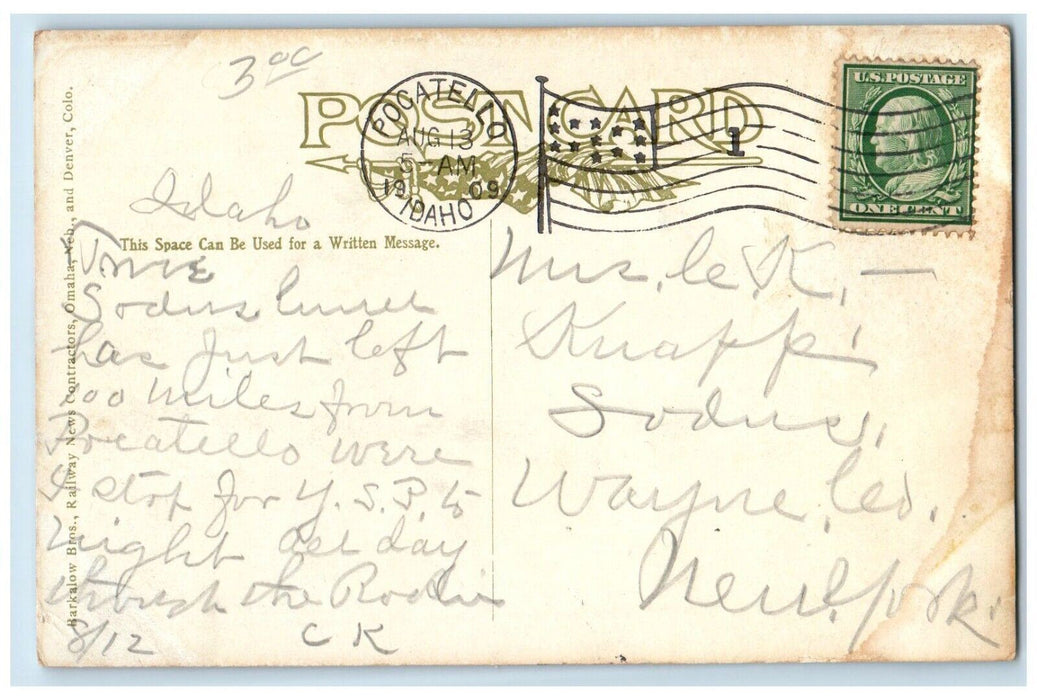 3 00
POST CARD
POCATELLO
AUG 13
5-AM
1909
IDAHO
1
U.S. POSTAGE
ONE CENT
Barkalow Bros., Railway News Contractors, Omaha, Neb., and Denver, Colo.
This Space Can Be Used for a Written Message.
Idaho
Time
Sodus
has just left
00 miles from
Pocatello were
I stop for Y.S.P. to
night all day
through the Rockies
8/12 C K
Mrs. C. K.
Knapp
Sodus,
Wayne, Co.
New York.